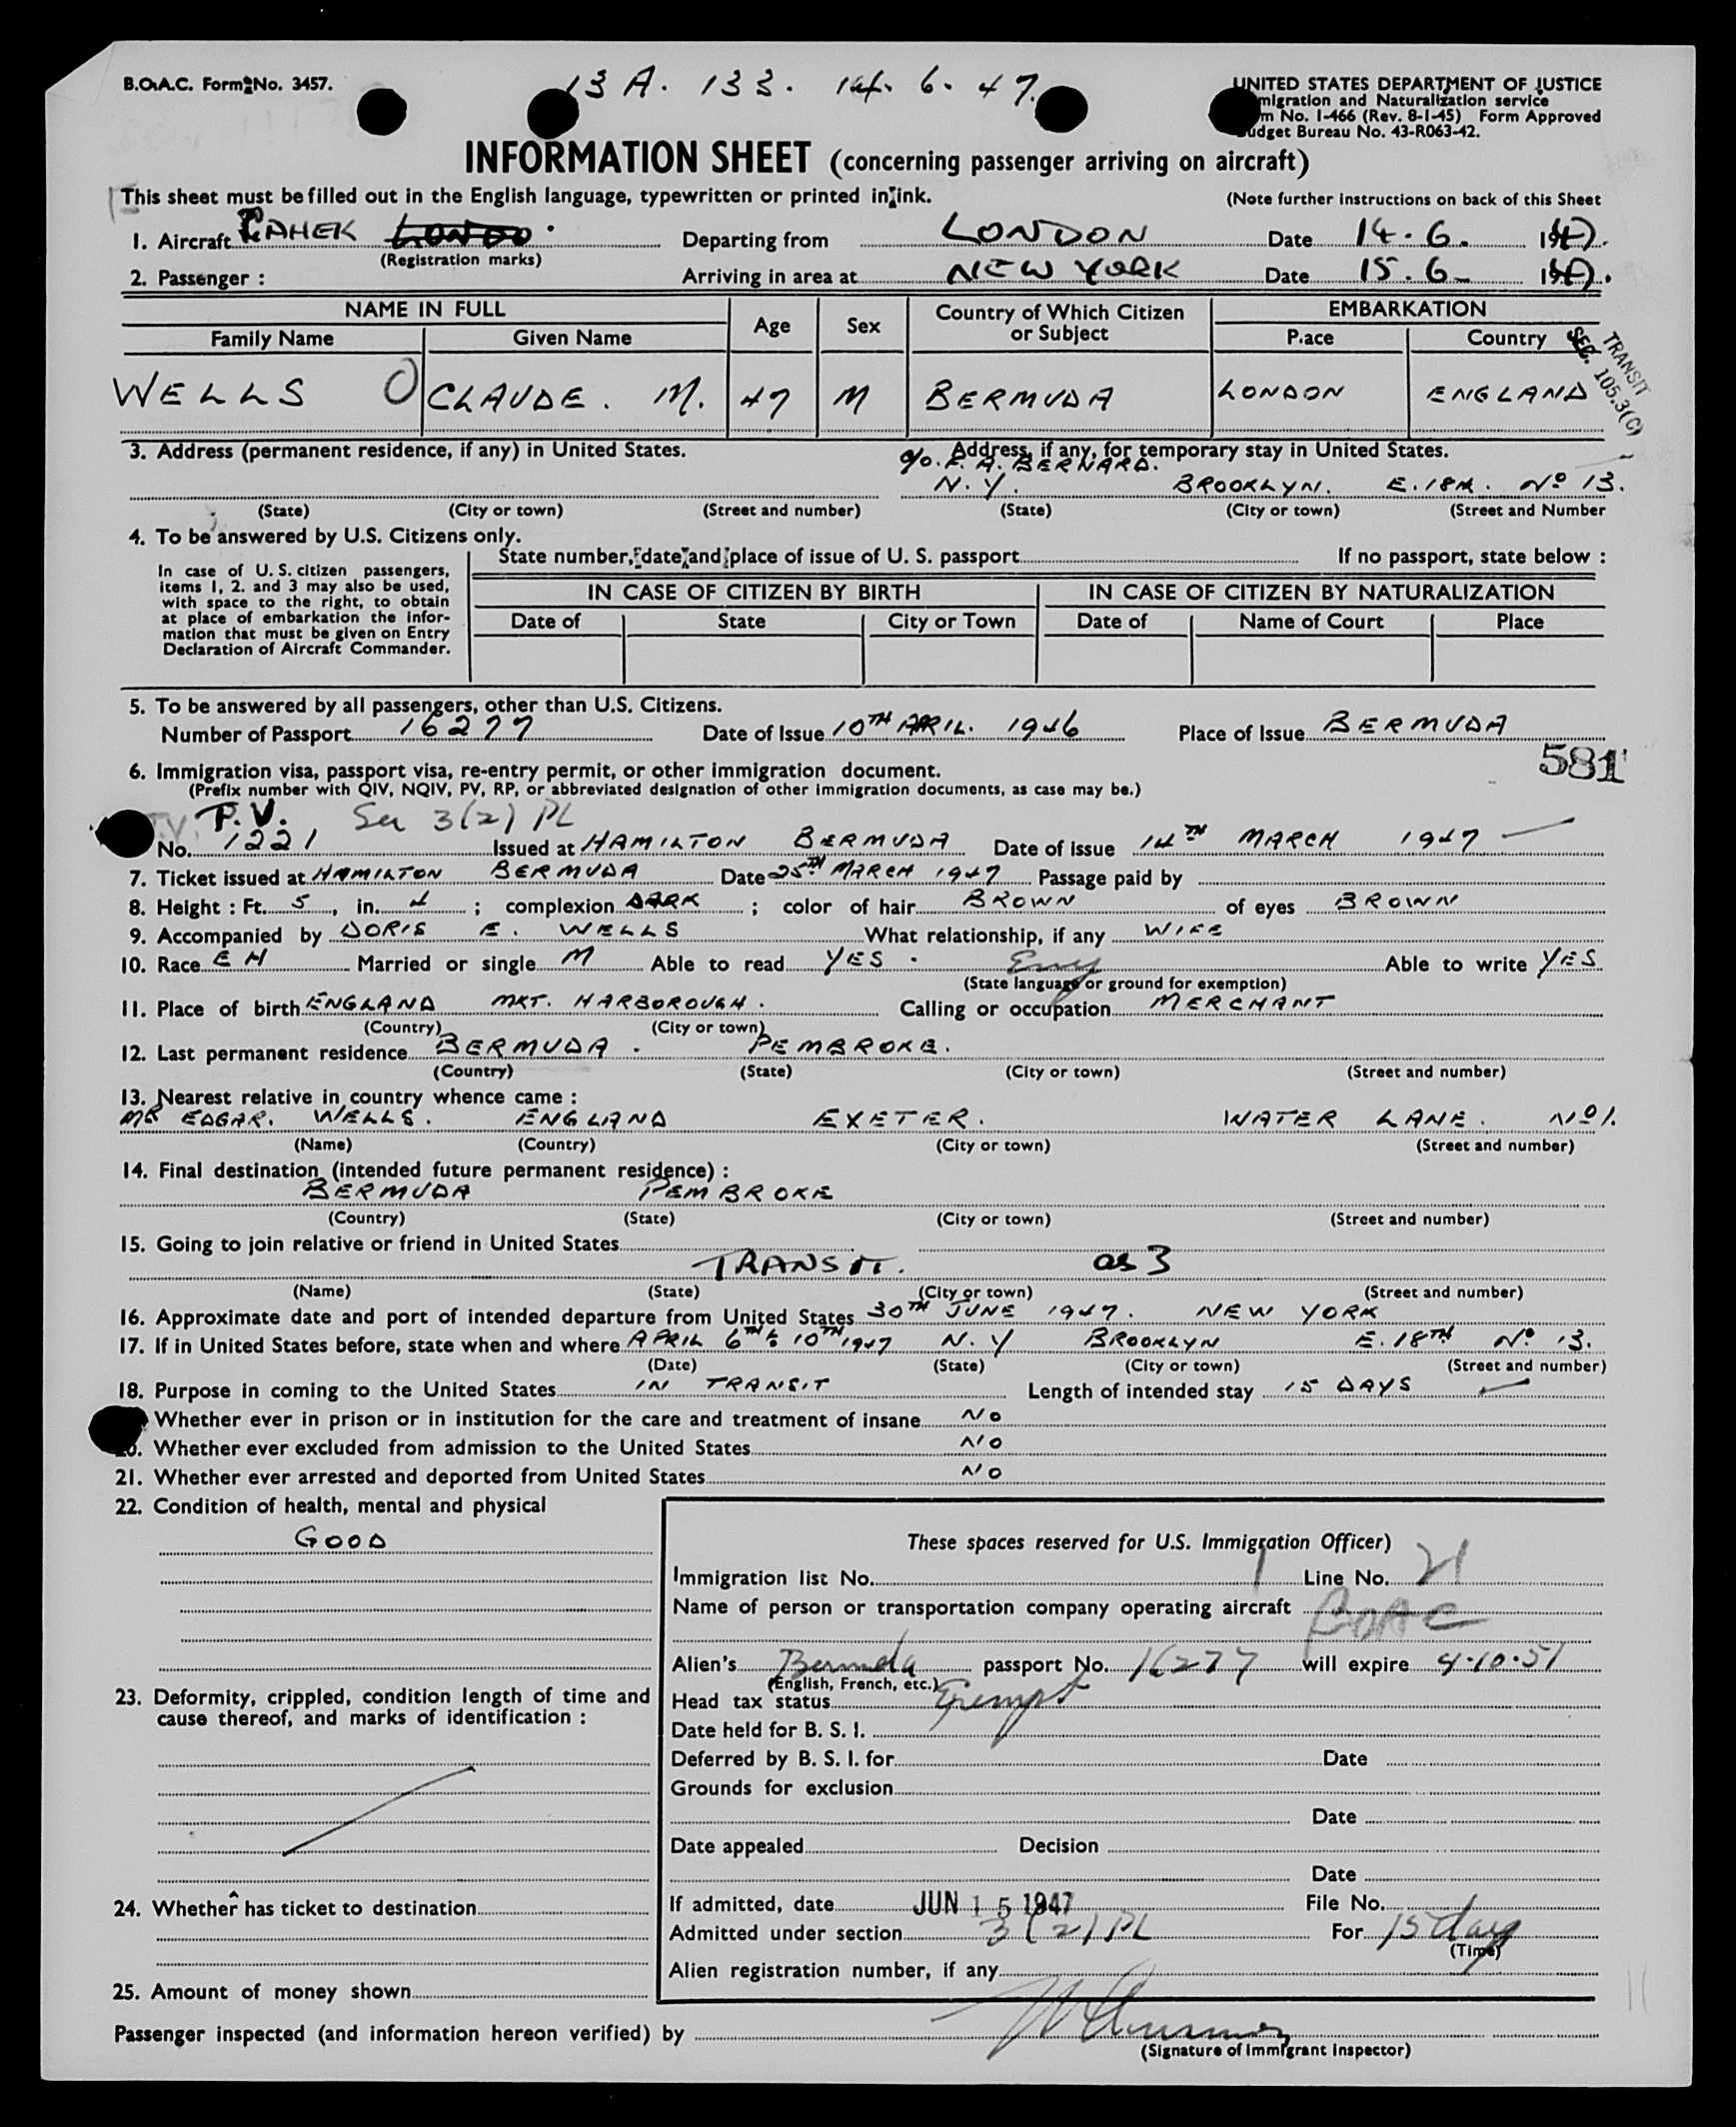 B.O.A.C. Form No. 3457.
13 A. 133. 14. 6. 47.
UNITED STATES DEPARTMENT OF JUSTICE
migration and Naturalization service
m No. I-466 (Rev. 8-1-45) Form Approved
udget Bureau No. 43-R063-42.
INFORMATION SHEET (concerning passenger arriving on aircraft)
This sheet must be filled out in the English language, typewritten or printed in ink.
(Note further instructions on back of this Sheet
1. Aircraft GAHEK Departing from LONDON Date 14.6. 1947.
(Registration marks)
2. Passenger : Arriving in area at NEW YORK Date 15.6 1947.
NAME IN FULL Age Sex Country of Which Citizen or Subject EMBARKATION
Family Name Given Name Place Country
TRANSIT
SEC. 105.3(C)
WELLS O CLAUDE. M. 47 M BERMUDA LONDON ENGLAND
3. Address (permanent residence, if any) in United States. Address, if any, for temporary stay in United States.
c/o. F. A. BERNARD.
N.Y. BROOKLYN. E. 18th. No 13.
(State) (City or town) (Street and number) (State) (City or town) (Street and Number
4. To be answered by U.S. Citizens only.
State number, date and place of issue of U. S. passport If no passport, state below :
In case of U. S. citizen passengers,
items 1, 2. and 3 may also be used,
with space to the right, to obtain
at place of embarkation the infor-
mation that must be given on Entry
Declaration of Aircraft Commander.
IN CASE OF CITIZEN BY BIRTH IN CASE OF CITIZEN BY NATURALIZATION
Date of State City or Town Date of Name of Court Place
5. To be answered by all passengers, other than U.S. Citizens.
Number of Passport 16277 Date of Issue 10TH APRIL. 1946 Place of Issue BERMUDA
581
6. Immigration visa, passport visa, re-entry permit, or other immigration document.
(Prefix number with QIV, NQIV, PV, RP, or abbreviated designation of other immigration documents, as case may be.)
P.V. Sec 3(2) PL
No. 1221 Issued at HAMILTON BERMUDA Date of issue 14TH MARCH 1947
7. Ticket issued at HAMILTON BERMUDA Date 25TH MARCH 1947 Passage paid by
8. Height : Ft. 5, in. 4 ; complexion DARK ; color of hair BROWN of eyes BROWN
9. Accompanied by DORIS E. WELLS What relationship, if any WIFE
10. Race E H Married or single M Able to read YES. Eng Able to write YES
(State language or ground for exemption)
11. Place of birth ENGLAND MKT. HARBOROUGH. Calling or occupation MERCHANT
(Country) (City or town)
12. Last permanent residence BERMUDA. PEMBROKE.
(Country) (State) (City or town) (Street and number)
13. Nearest relative in country whence came :
MR EDGAR. WELLS. ENGLAND EXETER. WATER LANE. No 1.
(Name) (Country) (City or town) (Street and number)
14. Final destination (intended future permanent residence) :
BERMUDA PEMBROKE
(Country) (State) (City or town) (Street and number)
15. Going to join relative or friend in United States
TRANSIT. as 3
(Name) (State) (City or town) (Street and number)
16. Approximate date and port of intended departure from United States 30TH JUNE 1947. NEW YORK
17. If in United States before, state when and where APRIL 6TH to 10TH 1947 N.Y BROOKLYN E. 18TH No. 13.
(Date) (State) (City or town) (Street and number)
18. Purpose in coming to the United States IN TRANSIT Length of intended stay 15 DAYS
Whether ever in prison or in institution for the care and treatment of insane No
20. Whether ever excluded from admission to the United States NO
21. Whether ever arrested and deported from United States NO
22. Condition of health, mental and physical
GOOD
23. Deformity, crippled, condition length of time and
cause thereof, and marks of identification :
24. Whether has ticket to destination
25. Amount of money shown
These spaces reserved for U.S. Immigration Officer)
Immigration list No. 1 Line No. 21
Name of person or transportation company operating aircraft BOAC
Alien's Bermuda passport No. 16277 will expire 4.10.51
(English, French, etc.)
Head tax status Exempt
Date held for B. S. I.
Deferred by B. S. I. for Date
Grounds for exclusion
Date
Date appealed Decision
Date
If admitted, date JUN 15 1947 File No.
Admitted under section 3(2) PL For 15 days
(Time)
Alien registration number, if any
Passenger inspected (and information hereon verified) by
(Signature of Immigrant Inspector)